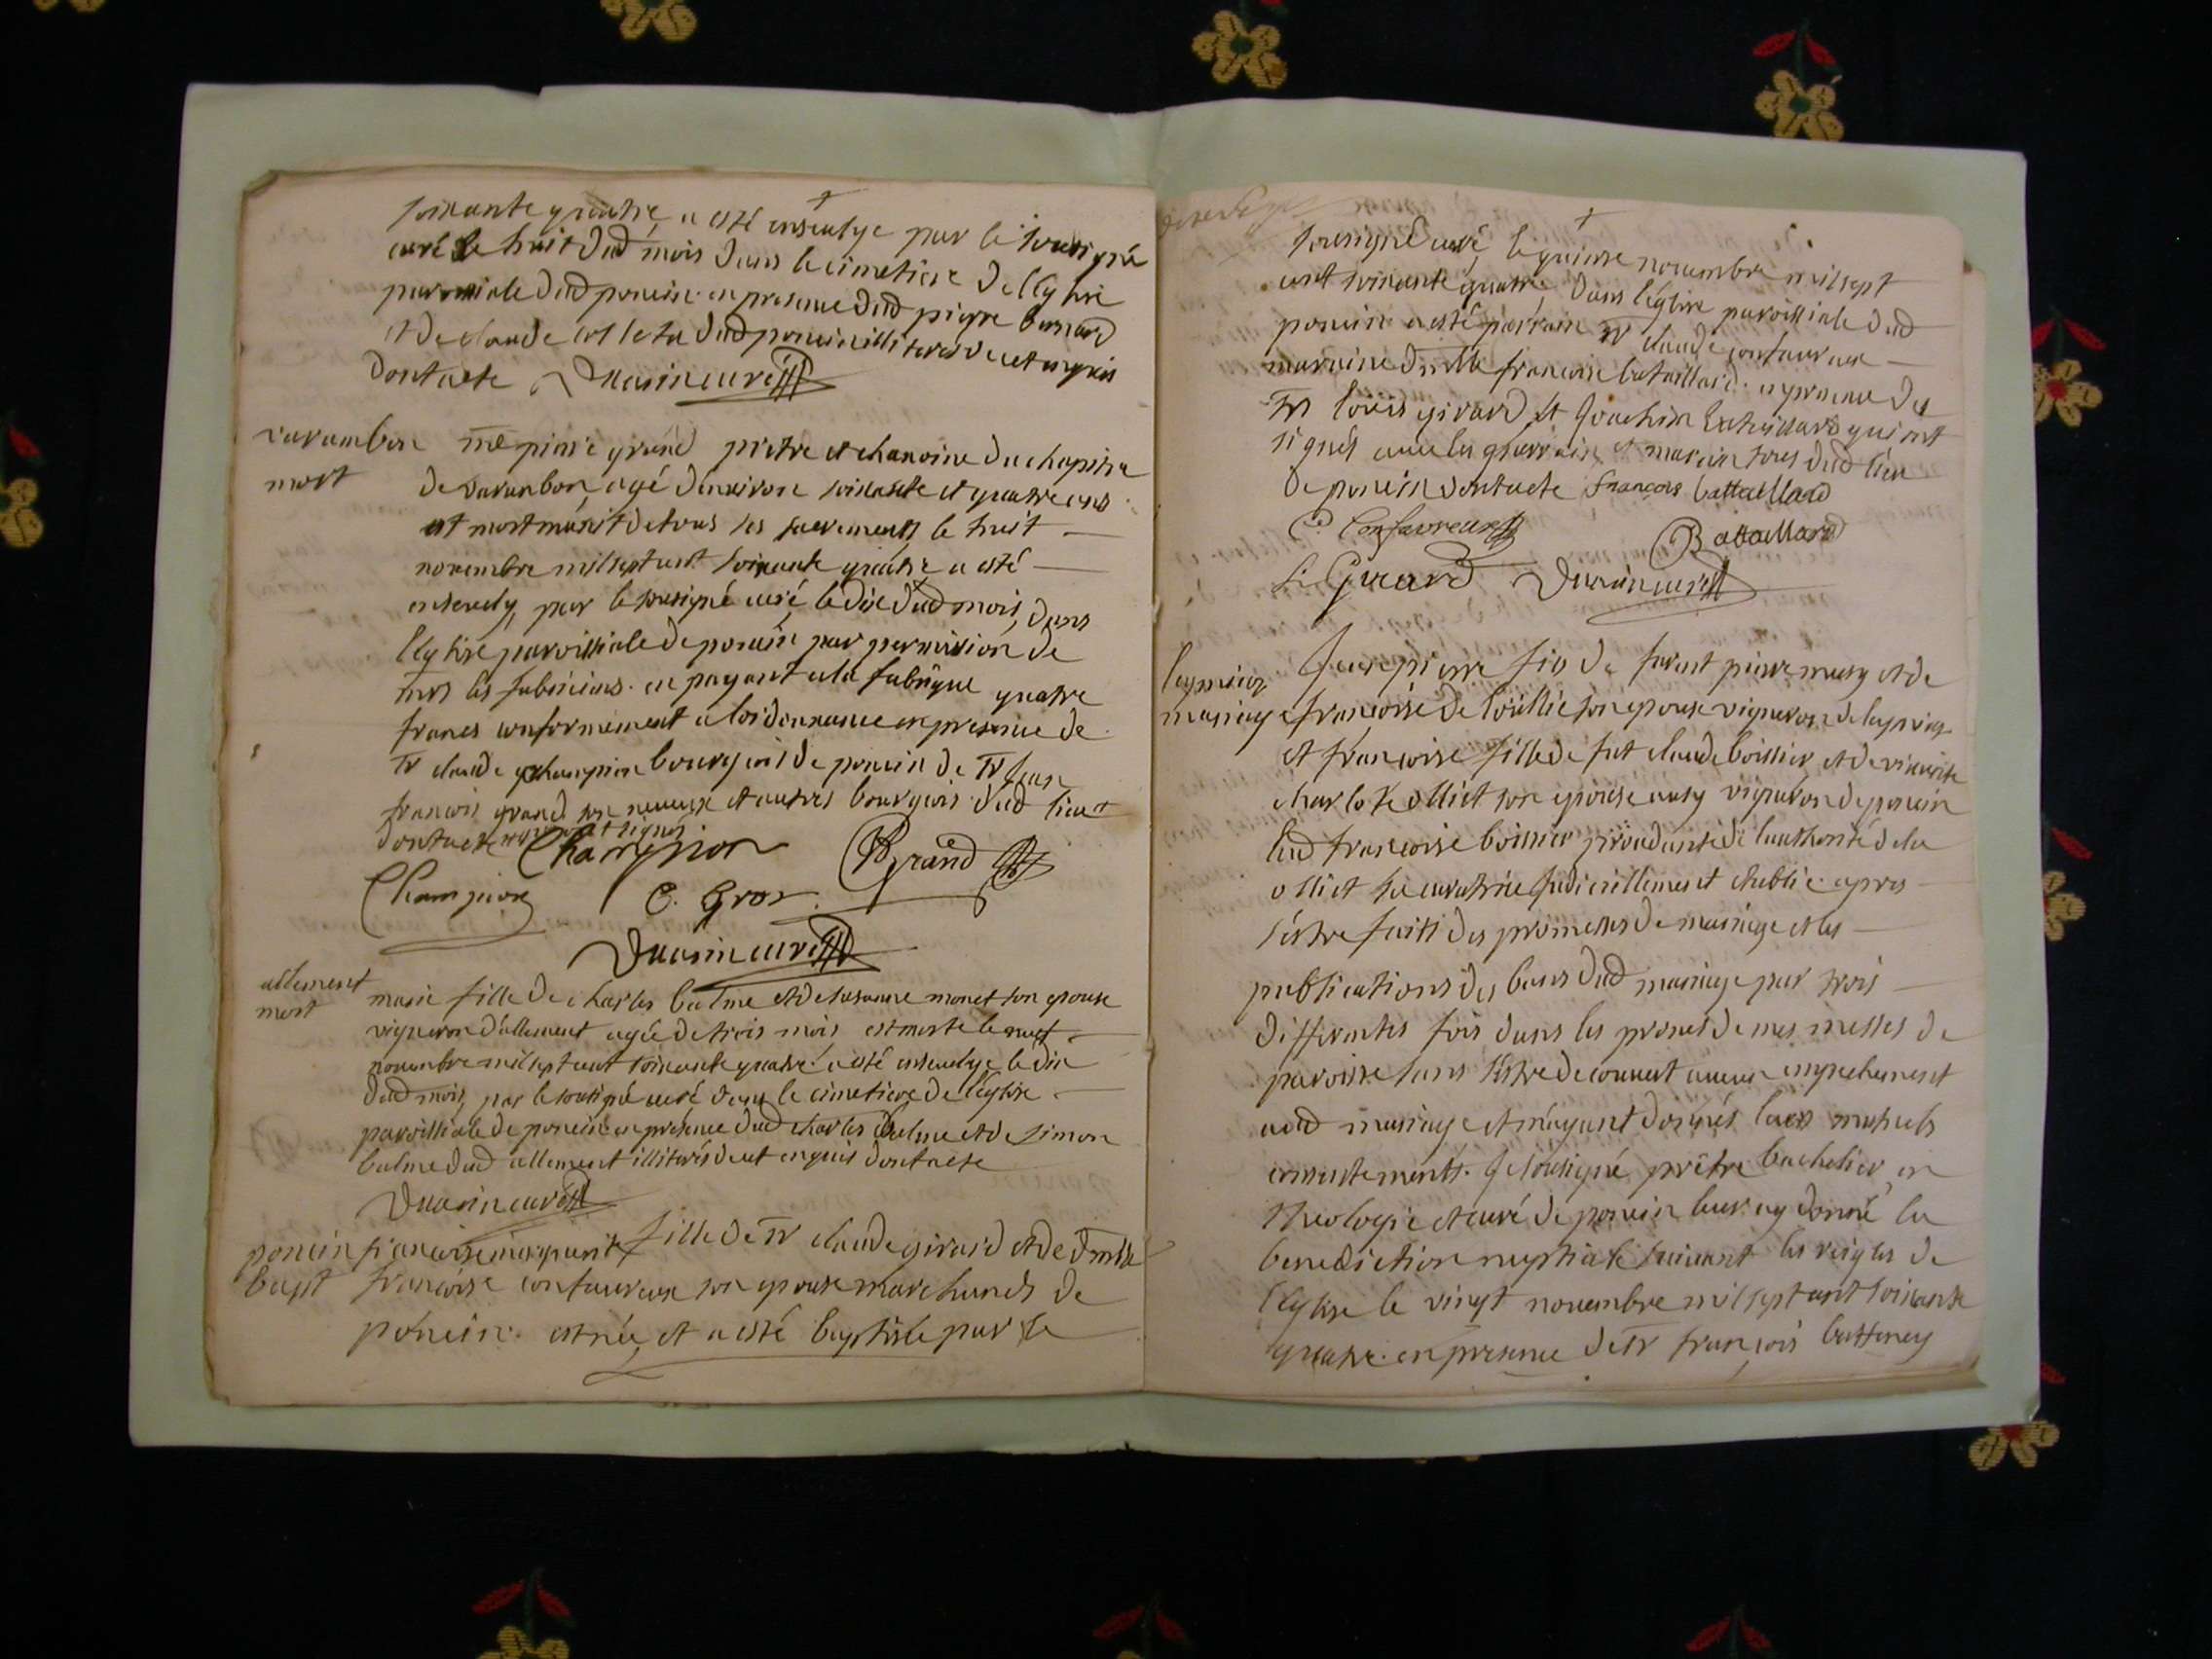 soixante quatre, a esté enseulye par le sousigné
curé le huit dud mois dans le cimetiere de l'eglise
paroissiale dud poncin en presence dud pierre bernard
et de claude colleta dud poncin illiterés de ce enquis
dontacte Duasin curé
varambon
mort
mre pierre grand pretre et chanoine du chapitre
de varambon, agé denviron soixante et quatre ans
est mort munit de tous ses sacrements le huit
novembre mil sept cent soixante quatre a esté
enseuely, par le sousigné curé, le dix dud mois, dans
l'eglise paroissiale de poncin par permission de
mrs les fabriciens. en payant a la fabrique quatre
francs conformement a lordonnance en presence de
sr claude champion bourgeois de poncin de sr jean
francois grand son neueux et autres bourgeois dud lieu
dontacte ont signés
Champion Grand
Champion C. Gros
Duasin curé
allement
mort
marie fille de charles balme et de susanne monet son epouse
vigneron d'allement agée de trois mois est morte le neuf
novembre mil sept cent soixante quatre a esté enseuelye le dix
dud mois, par le sousigné curé dans le cimetiere de l'eglise
paroissiale de poncin en presence dud charles balme et de simon
balme dud allement illiterés de ce enquis dontacte
Duasin curé
poncin
bapt
francoise marguerite fille de sr claude girard et de dmlle
francoise confavreux son epouse marchands de
poncin. est née, et a esté baptisée par le
sousigné curé, le quinze novembre mil sept
cent soixante quatre, dans l'église paroissiale dud
poncin a esté parrain sr claude confavreux
marraine dmlle francoise bataillard. en presence des
srs loüis girard et Joachim bataillard qui ont
signés avec les parrain et marraine tous dud lieu
de poncin dontacte françois battaillard
C. Confavreux Battaillard
L. Girard Duasin curé
leymiaz
mariage
Jean pierre fis de furent pierre musy et de
francoise de son epouse vigneron de leymiaz
et francoise fille de fut claude boillier et de vivante
charlote olliet son epouse aussy vigneron de poncin
lad francoise boillier procedante de lauthorité de la
olliet sa curatrice Judiciellement etablie. apres
s'estre faitt des promesses de mariage et les
publications des bans dud mariage par trois
differentes fois dans les prones de mes messes de
paroisse sans s'estre decouvert aucun empechement
aud mariage et m'ayant donnés leurs mutuels
consentements. Je sousigné prêtre bachelier en
theologie et curé de poncin leur ay donné la
benediction nuptiale suivant les reigles de
l'eglise le vingt novembre mil sept cent soixante
quatre. en presence de sr françois batteney